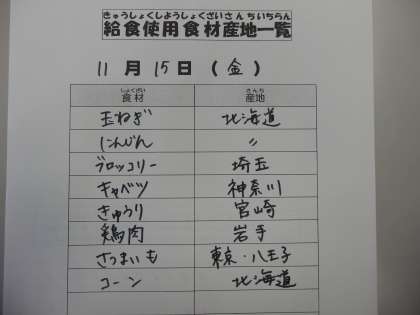 きゅうしょくしようしょくざいさんちいちらん
給食使用食材産地一覧
11月15日(金)
しょくざい さんち
食材 産地
玉ねぎ 北海道
にんじん 〃
ブロッコリー 埼玉
キャベツ 神奈川
きゅうり 宮崎
鶏肉 岩手
さつまいも 東京・八王子
コーン 北海道